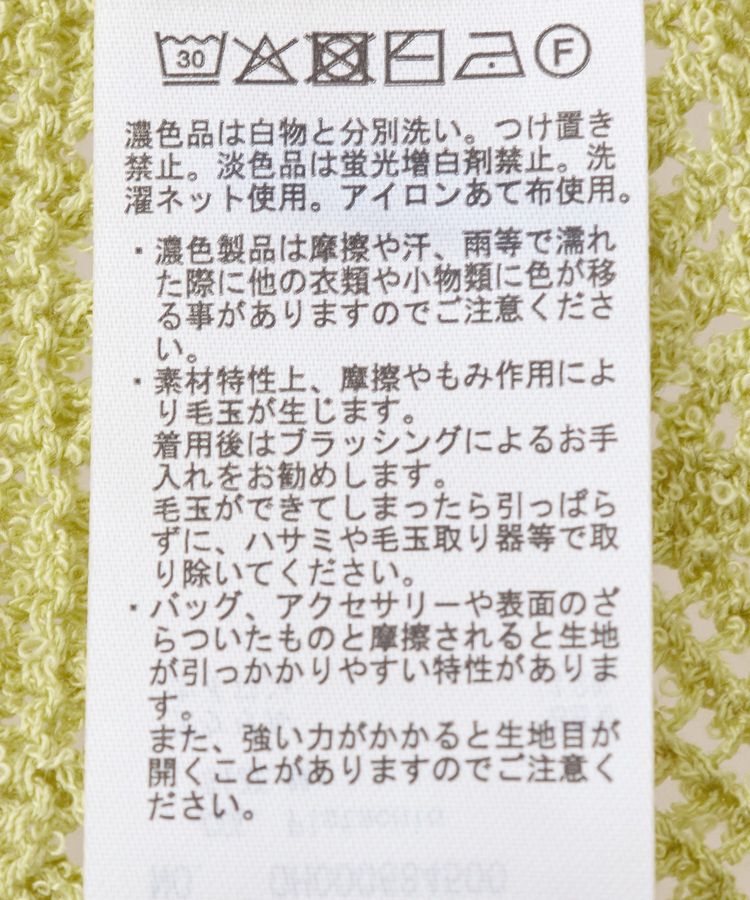 30 F
濃色品は白物と分別洗い。つけ置き
禁止。淡色品は蛍光増白剤禁止。洗
濯ネット使用。アイロンあて布使用。
・濃色製品は摩擦や汗、雨等で濡れ
た際に他の衣類や小物類に色が移
る事がありますのでご注意くださ
い。
・素材特性上、摩擦やもみ作用によ
り毛玉が生じます。
着用後はブラッシングによるお手
入れをお勧めします。
毛玉ができてしまったら引っぱら
ずに、ハサミや毛玉取り器等で取
り除いてください。
・バッグ、アクセサリーや表面のざ
らついたものと摩擦されると生地
が引っかかりやすい特性がありま
す。
また、強い力がかかると生地目が
開くことがありますのでご注意く
ださい。
Pistachio
NO. 0H000684500